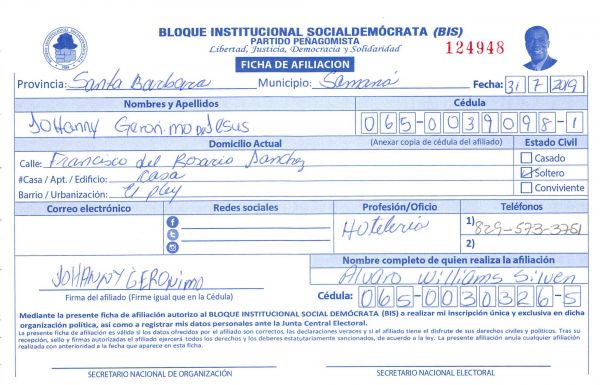 BLOQUE INSTITUCIONAL SOCIALDEMÓCRATA (BIS)
PARTIDO PEÑAGOMISTA
Libertad, Justicia, Democracia y Solidaridad
124948
FICHA DE AFILIACION
Provincia: Santa Barbara Municipio: Samaná Fecha: 31/7/2019
Nombres y Apellidos Cédula
JOHanny Geronimo De Jesus 065-0039098-1
Domicilio Actual (Anexar copia de cédula del afiliado) Estado Civil
Calle: Francisco del Rosario Sanchez Casado
#Casa / Apt. / Edificio: casa Soltero
Barrio / Urbanización: El pley Conviviente
Correo electrónico Redes sociales Profesión/Oficio Teléfonos
Hoteleria 1) 829-573-3751
2)
Nombre completo de quien realiza la afiliación
JOHANNY GERONIMO Alvaro Williams
Firma del afiliado (Firme igual que en la Cédula) Cédula: 065-0030326-5
Mediante la presente ficha de afiliación autorizo al BLOQUE INSTITUCIONAL SOCIAL DEMÓCRATA (BIS) a realizar mi inscripción única y exclusiva en dicha
organización política, así como a registrar mis datos personales ante la Junta Central Electoral.
La presente ficha de afiliación es válida si los datos ofrecidos por el afiliado son correctos, las declaraciones veraces y si el afiliado tiene el disfrute de sus derechos civiles y políticos. Tras su
recepción, sello y firmas autorizadas el afiliado ejercerá todos los derechos y los deberes estatutariamente sancionados, de acuerdo a la ley. La presente afiliación anula cualquier afiliación
realizada con anterioridad a la fecha que aparece en esta ficha.
SECRETARIO NACIONAL DE ORGANIZACIÓN SECRETARIO NACIONAL ELECTORAL